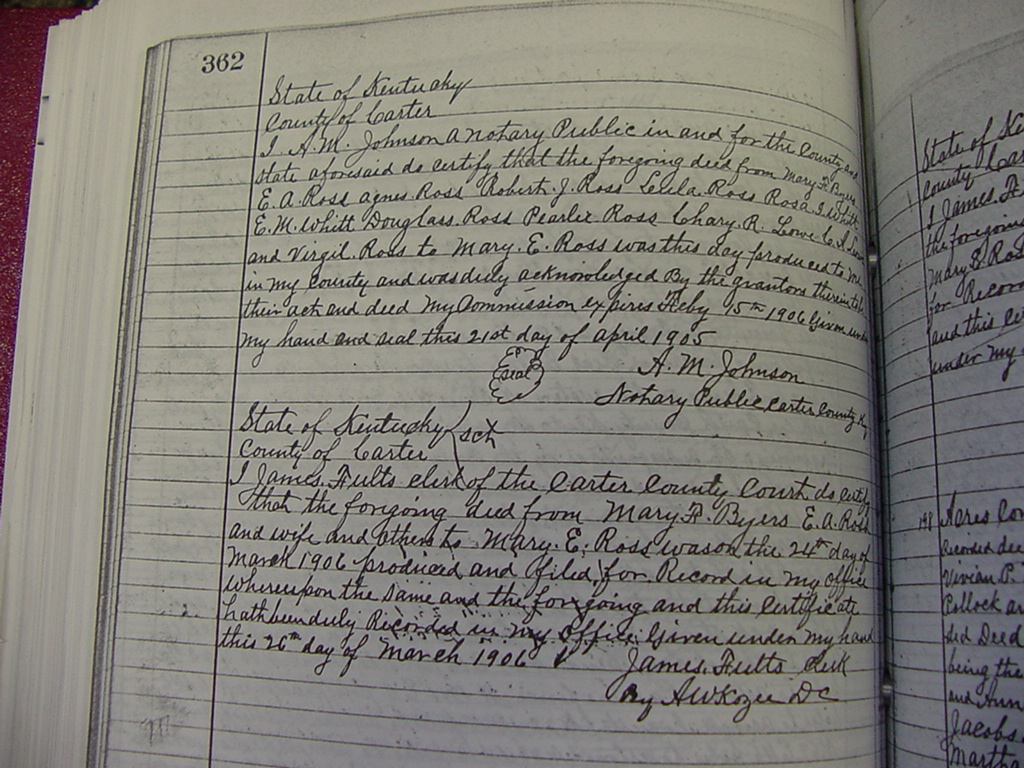 362
State of Kentucky
County of Carter
I A. M. Johnson a notary Public in and for the County and
state aforesaid do certify that the foregoing deed from Mary F. Byers
E. A. Ross agnes Ross Robert. J. Ross Leula. Ross Rosa. I. Whitt
E. M. Whitt Douglass. Ross Pearlie Ross Chary. R. Lowe C. A. Lowe
and Virgil. Ross to Mary. E. Ross was this day produced to me
in my county and was duly acknowledged By the grantors therein to be
their act and deed My Commission expires Feby 15th 1906 Given under
my hand and seal this 21st day of April 1905
Seal
A. M. Johnson
Notary Public Carter County Ky
State of Kentucky
County of Carter
sct
I James. Fults clerk of the Carter County Court do certify
that the foregoing deed from Mary F. Byers E. A. Ross
and wife and others to Mary. E. Ross was on the 24th day of
March 1906 produced and filed for Record in my office
whereupon the same and the foregoing and this certificate
hath been duly Recorded in my office. Given under my hand
this 26th day of March 1906
James. Fults clerk
By A W Kozee DC
State of Ke
County Car
I James. F
the foregoing
Mary E. Ros
for Recor
and this
under my
148 Acres
Recorded dee
Vivian P.
Pollock
ded Deed
being the
and
Jacobs
Martha